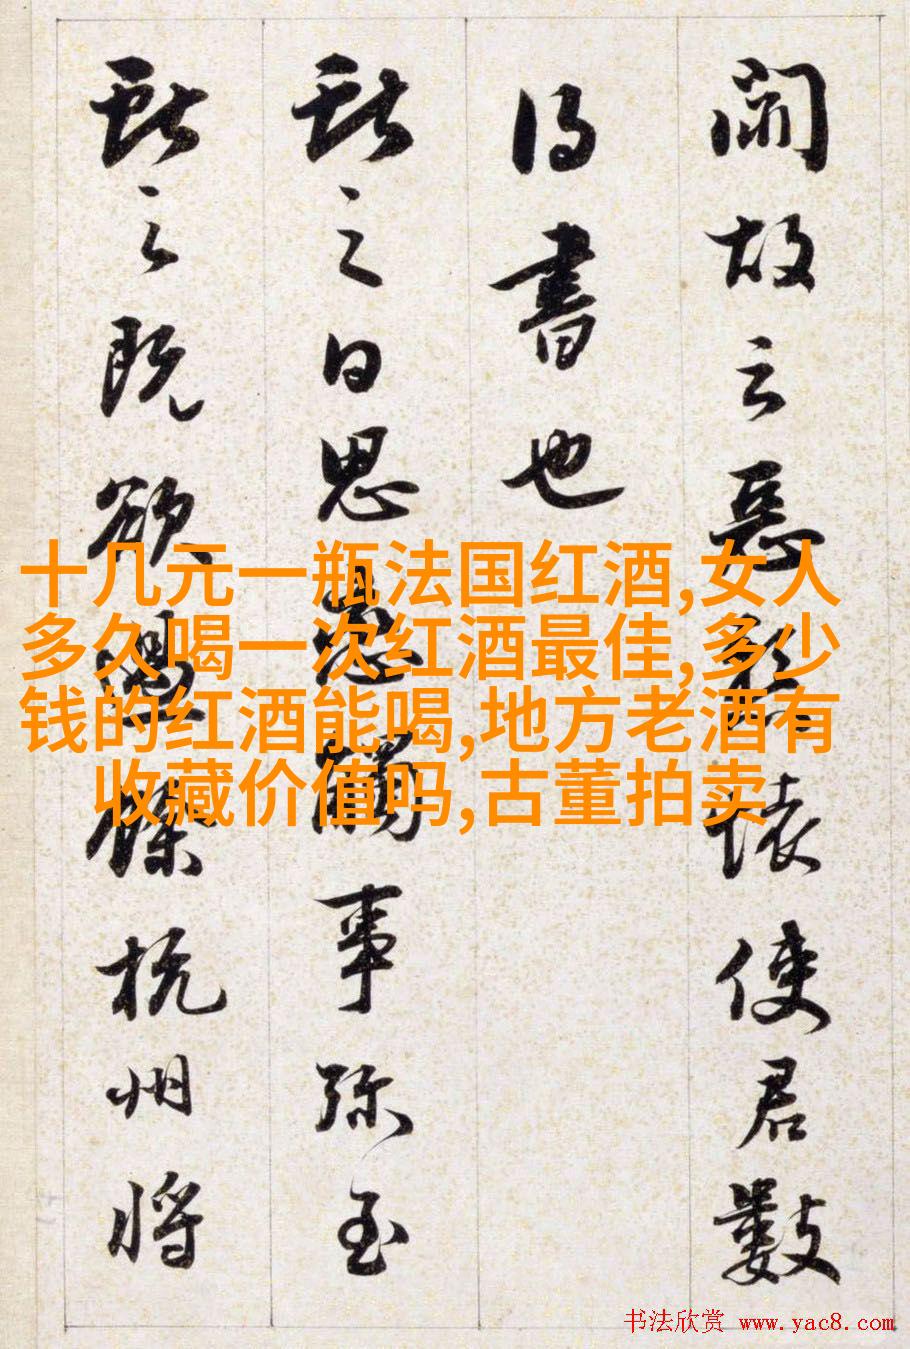 闻故云恶
懐使君数
得书也
獃之日思
事弥至
獃之既欲
杭州将
十几元一瓶法国红酒,女人
多久喝一次红酒最佳,多少
钱的红酒能喝,地方老酒有
收藏价值吗,古董拍卖
书法欣赏 www.yac8.com